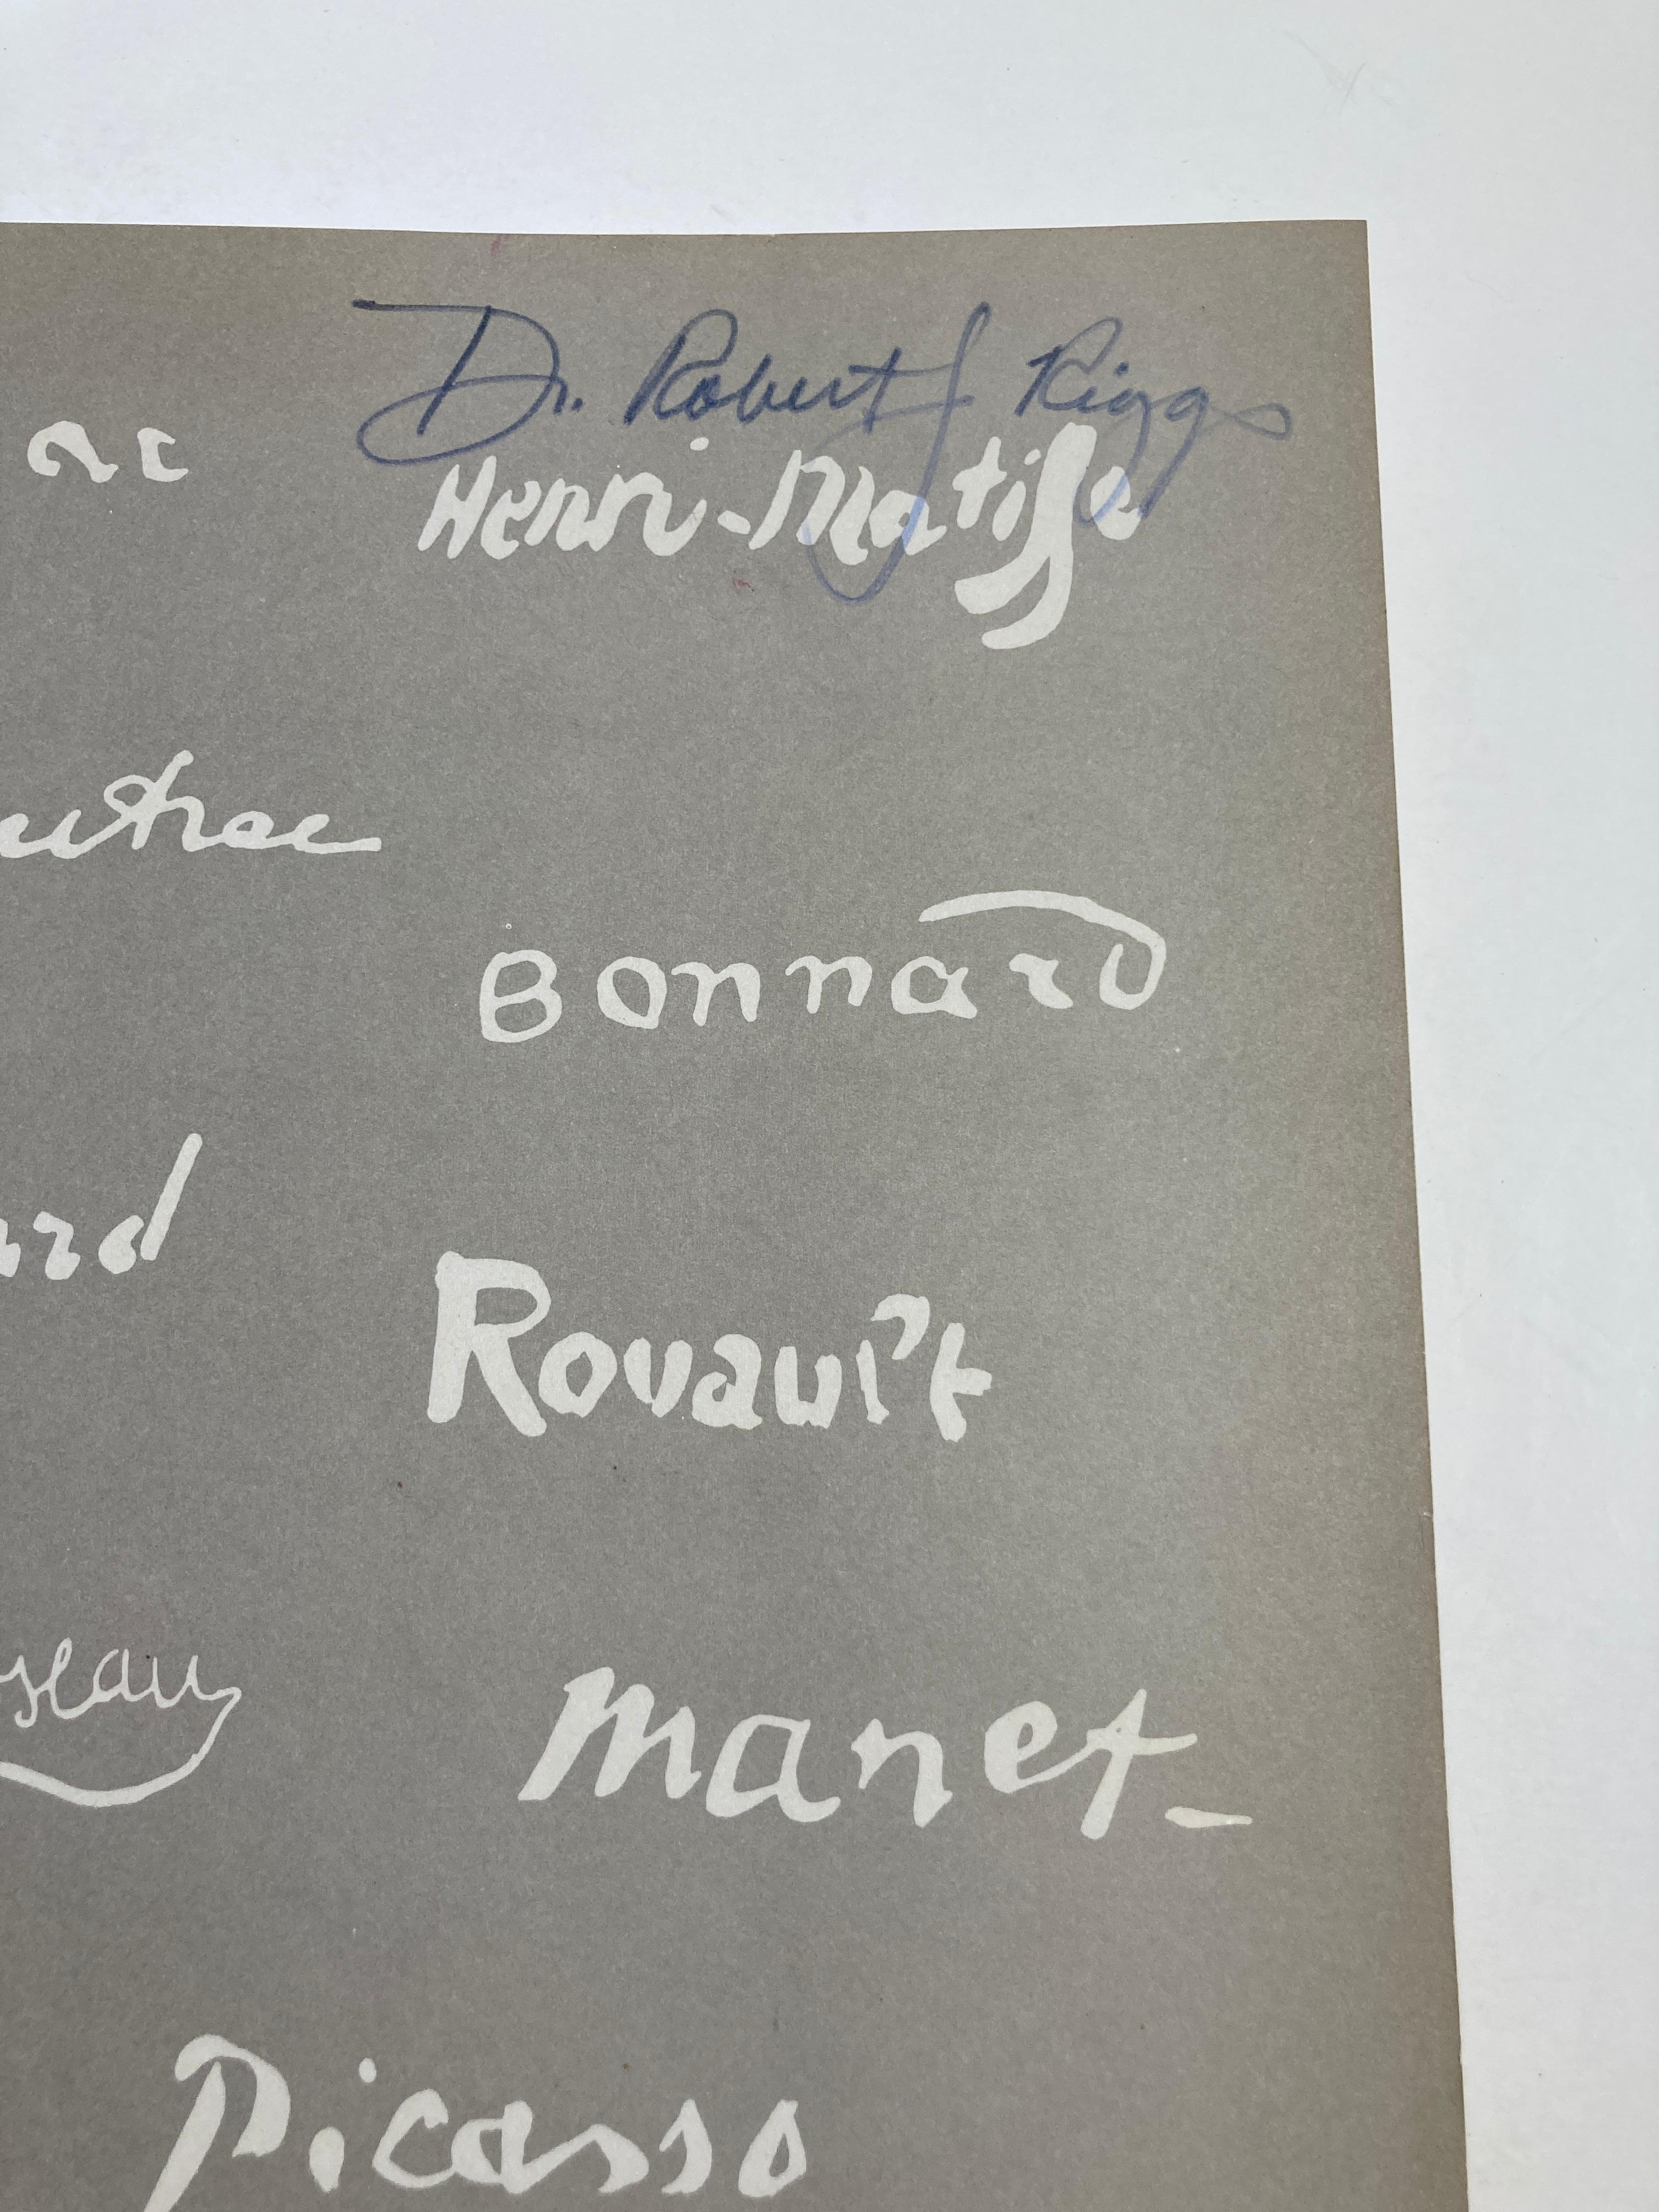 Dr. Robert J Riggs
ac
Henri-Matisse
utrec
Bonnard
ard
Rouault
sseau
Manet_
Picasso